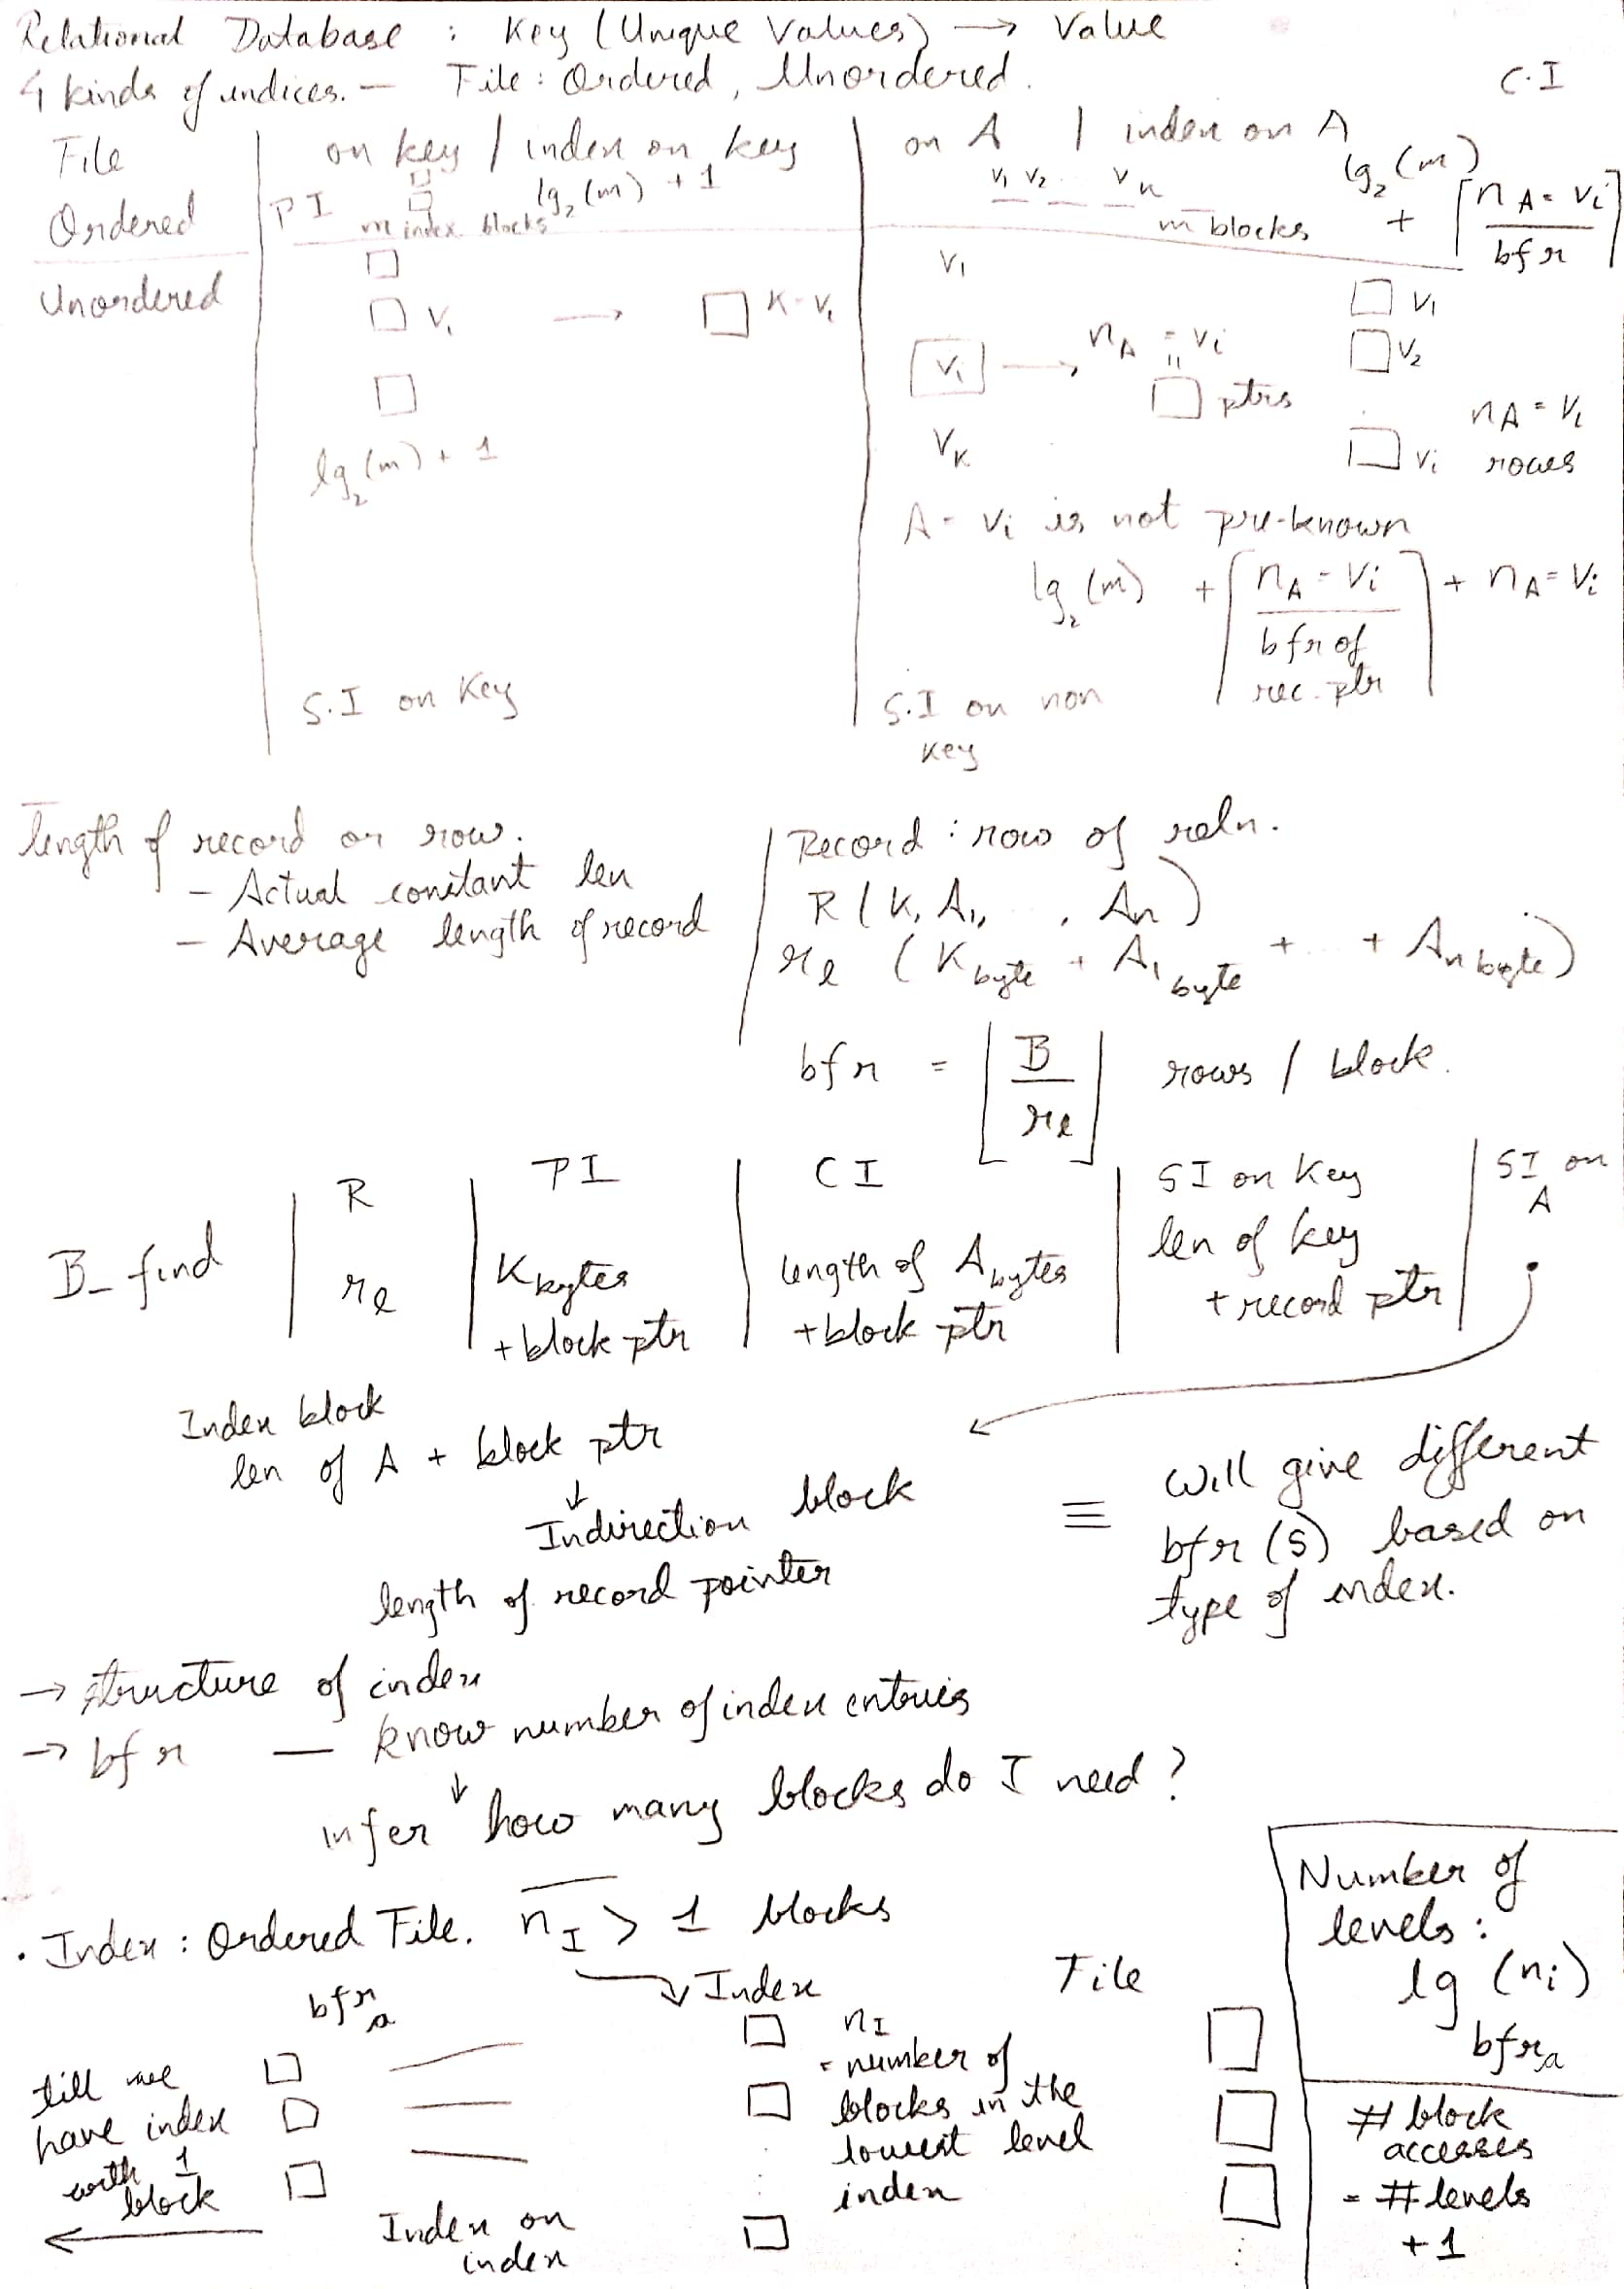 Relational Database : Key (Unique Values) → Value
4 kinds of indices. — File : Ordered, Unordered.
C.I
File | on key / index on key | on A / index on A
Ordered
PI
m index blocks
lg₂(m) + 1
v₁ v₂ .. vₖ
m blocks
lg₂(m) + ⌈n A = vᵢ / bfr⌉
Unordered
V₁ → K = V₁
lg₂(m) + 1
S.I on Key
V₁
Vᵢ → n_A = vᵢ
ptrs
Vₖ
V₁
V₂
Vᵢ
n_A = Vᵢ
rows
A = Vᵢ is not pre-known
lg₂(m) + ⌈n_A = Vᵢ / bfr of rec. ptr⌉ + n_A = Vᵢ
S.I on non
key
length of record or row.
- Actual constant len
- Average length of record
Record : row of reln.
R(K, A₁, .. , Aₙ)
r_l (K byte + A₁ byte + .. + Aₙ byte)
bfr = ⌊B / r_l⌋ rows / block.
B – find
R
r_l
PI
K bytes
+ block ptr
CI
length of A bytes
+ block ptr
SI on Key
len of key
+ record ptr
SI on
A
Index block
len of A + block ptr
↓
Indirection block
length of record pointer
≡ Will give different
bfr(s) based on
type of index.
→ structure of index
→ bfr — know number of index entries
↓
infer how many blocks do I need?
· Index : Ordered File. n_I > 1 blocks
→ Index
File
bfrₐ
n_I
= number of
blocks in the
lowest level
index
till we
have index
with 1
block
Index on
index
Number of
levels :
lg (nᵢ)
bfrₐ
# block
accesses
= # levels
+ 1